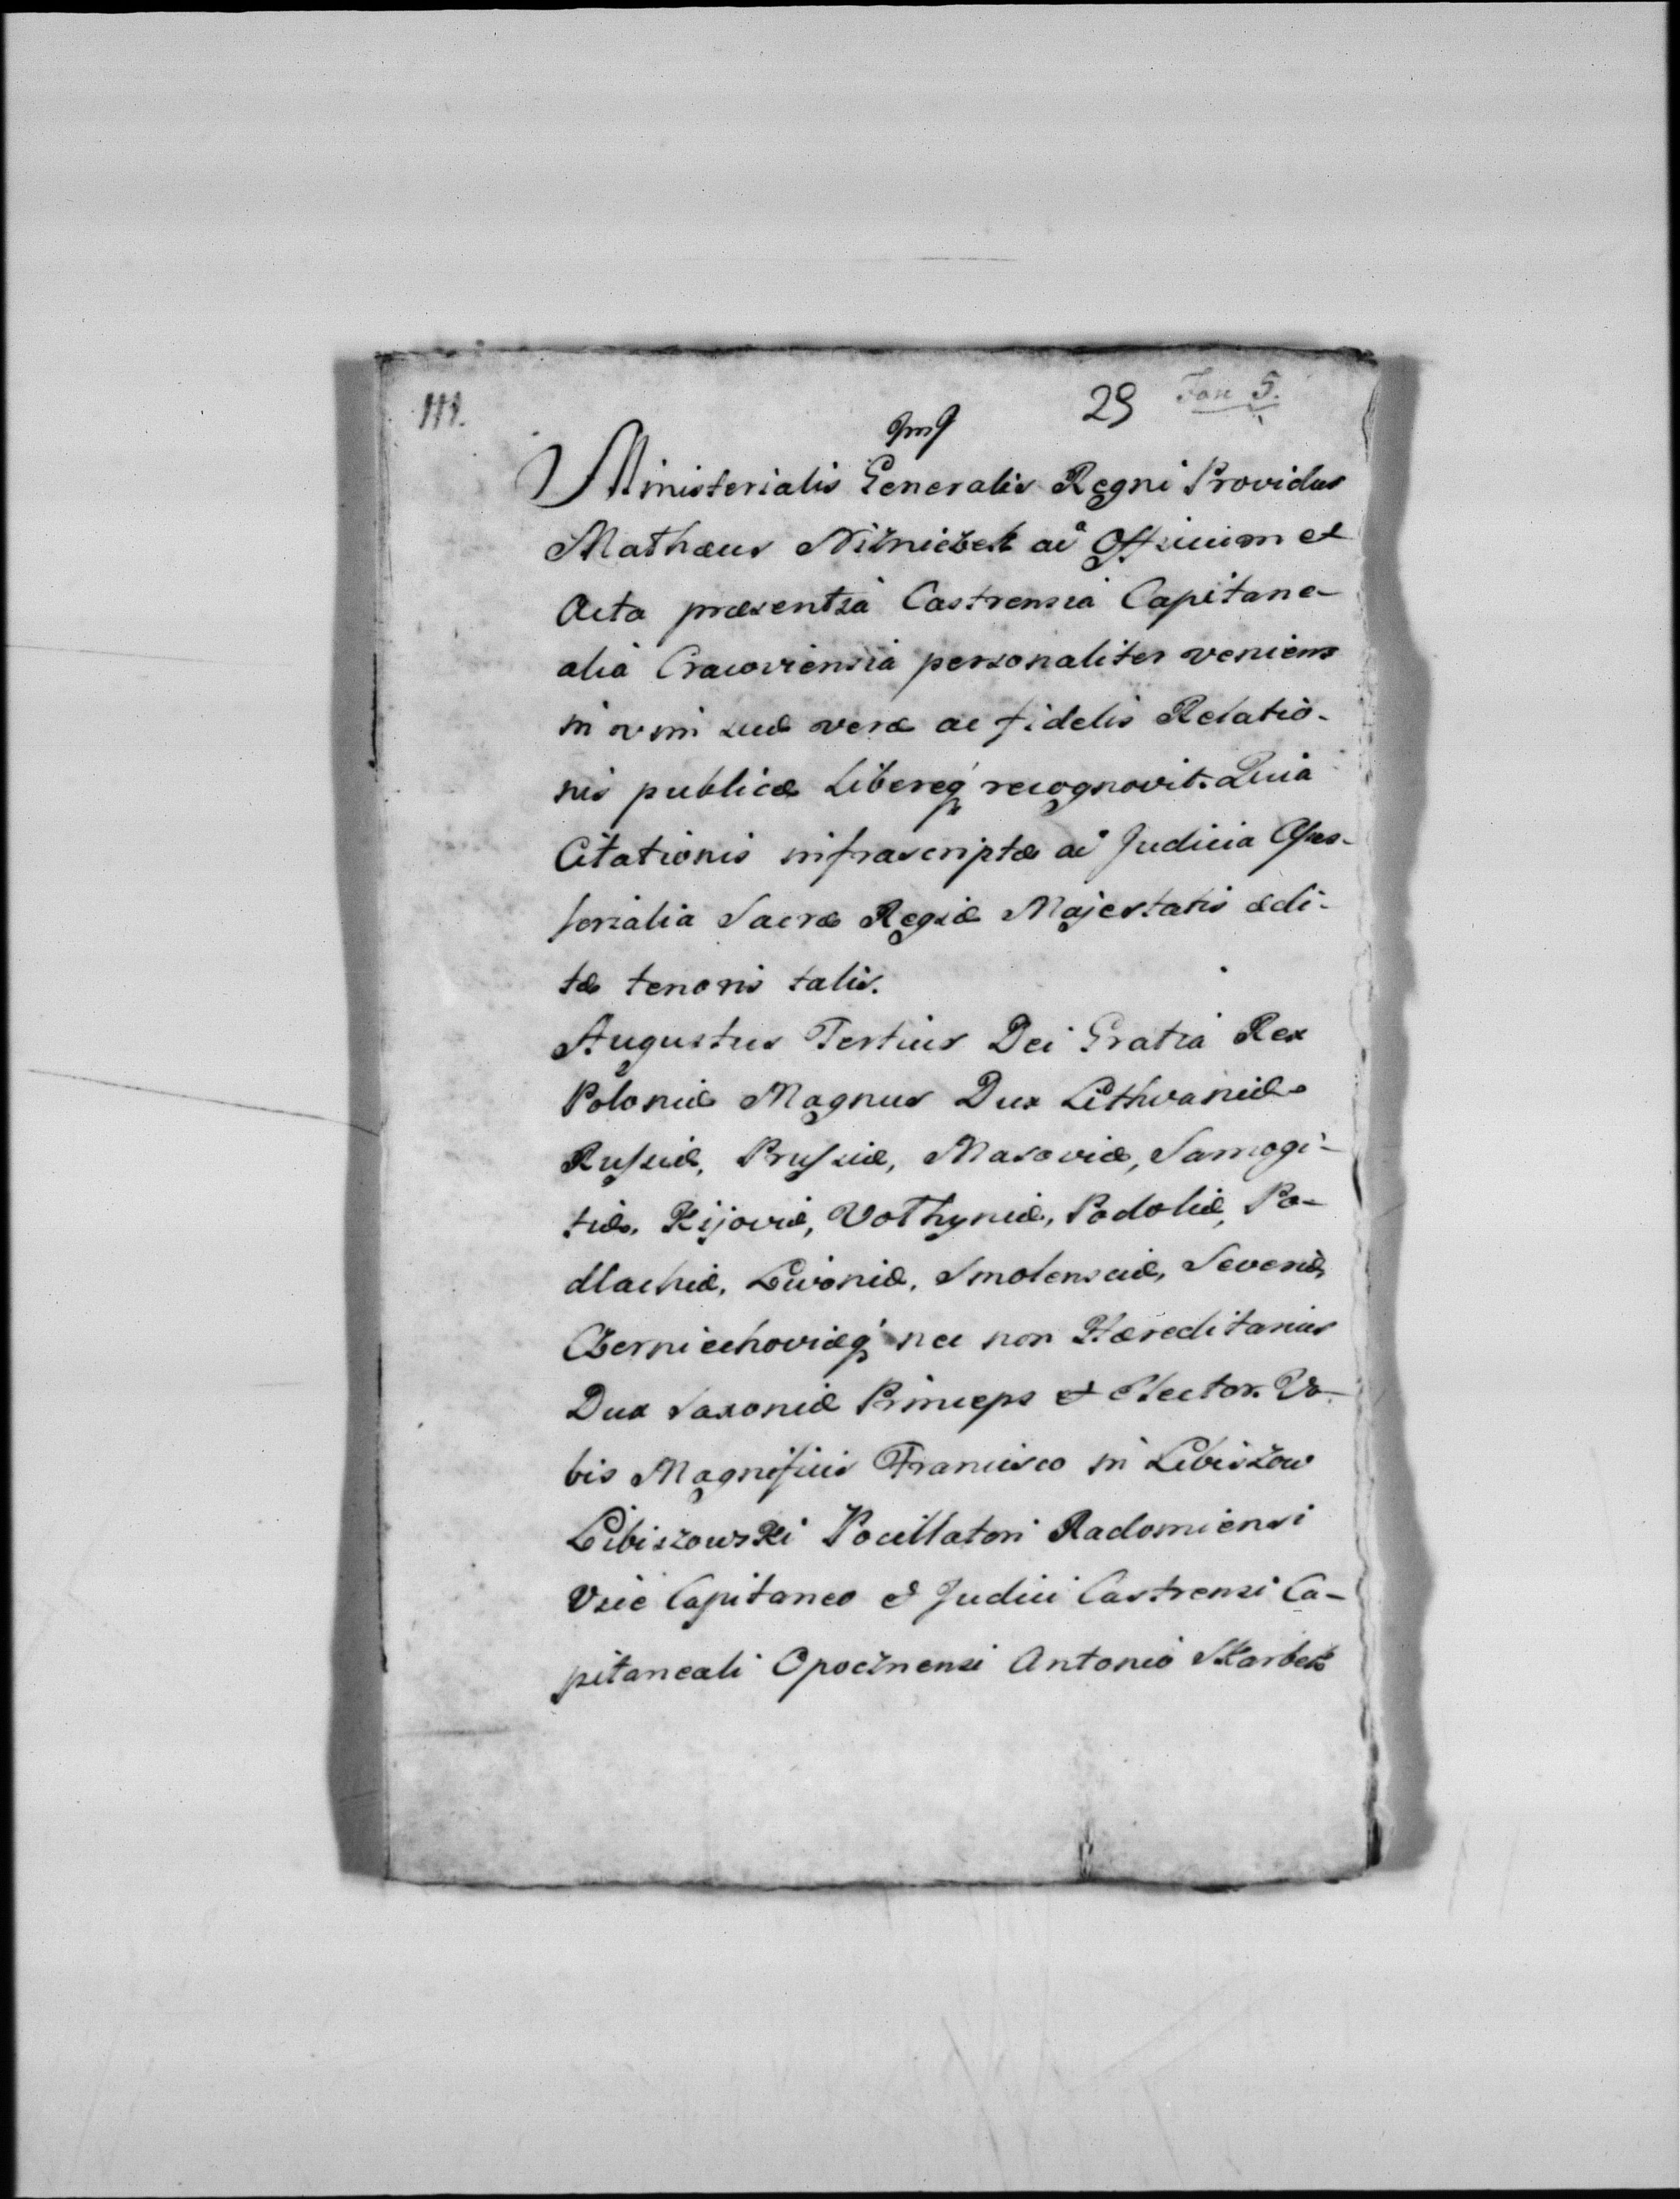 111.
29 Fasc 5.
Ministerialis Generalis Regni Providus
Mathæus Niżniczek ad Officium et
Acta præsentia Castrensia Capitane-
alia Cracoviensia personaliter veniens
in vim suæ veræ ac fidelis Relatio-
nis publicæ Libereq recognovit. Quia
Citationis infrascriptæ ad Judicia Asses-
sorialia Sacræ Regiæ Majestatis ædi-
tæ tenoris talis.
Augustus Tertius Dei Gratia Rex
Poloniæ Magnus Dux Lithvaniæ
Russiæ, Prussiæ, Masoviæ, Samogi-
tiæ, Kijoviæ, Volhyniæ, Podoliæ, Po-
dlachiæ, Livoniæ, Smolensciæ, Severiæ,
Czerniechoviæq nec non Hæreditarius
Dux Saxoniæ Princeps et Elector. Vo-
bis Magnificis Francisco in Libiszow
Libiszowski Pocillatori Radomiensi
Vice Capitaneo et Judici Castrensi Ca-
pitaneali Opocznensi Antonio Skarbek